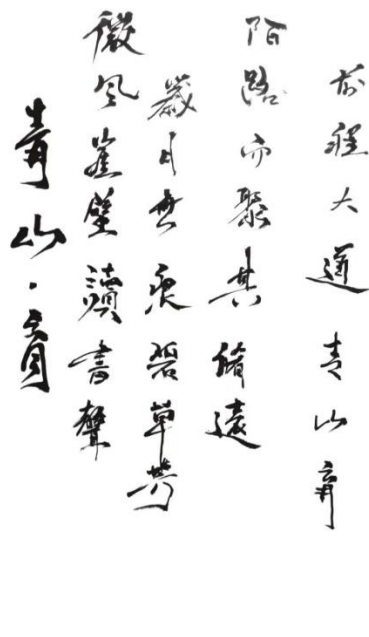 前程大道青山育
陌路亦聚其脩遠
歲月無痕碧草芳
微風崖壁讀書聲
青山·育